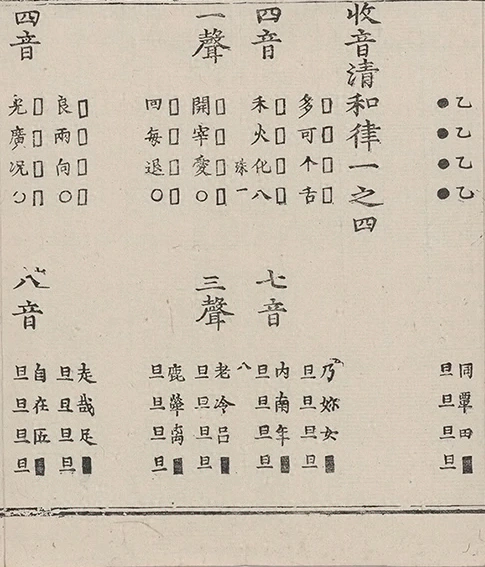 乙乙乙乙
●●●●
同覃田■
旦旦旦旦
收音清和律一之四
四音
□□□□
多可个舌
□□□□
禾火化八
一聲
□□□□
開宰愛○
□□□□
回每退○
四音
□□□○
良兩向○
□□□□
光廣況○
七音
乃妳女■
旦旦旦旦
內南年■
旦旦旦旦
三聲
老冷呂■
旦旦旦旦
鹿犖离■
旦旦旦旦
八音
走哉足■
旦旦旦旦
自在匠■
旦旦旦旦